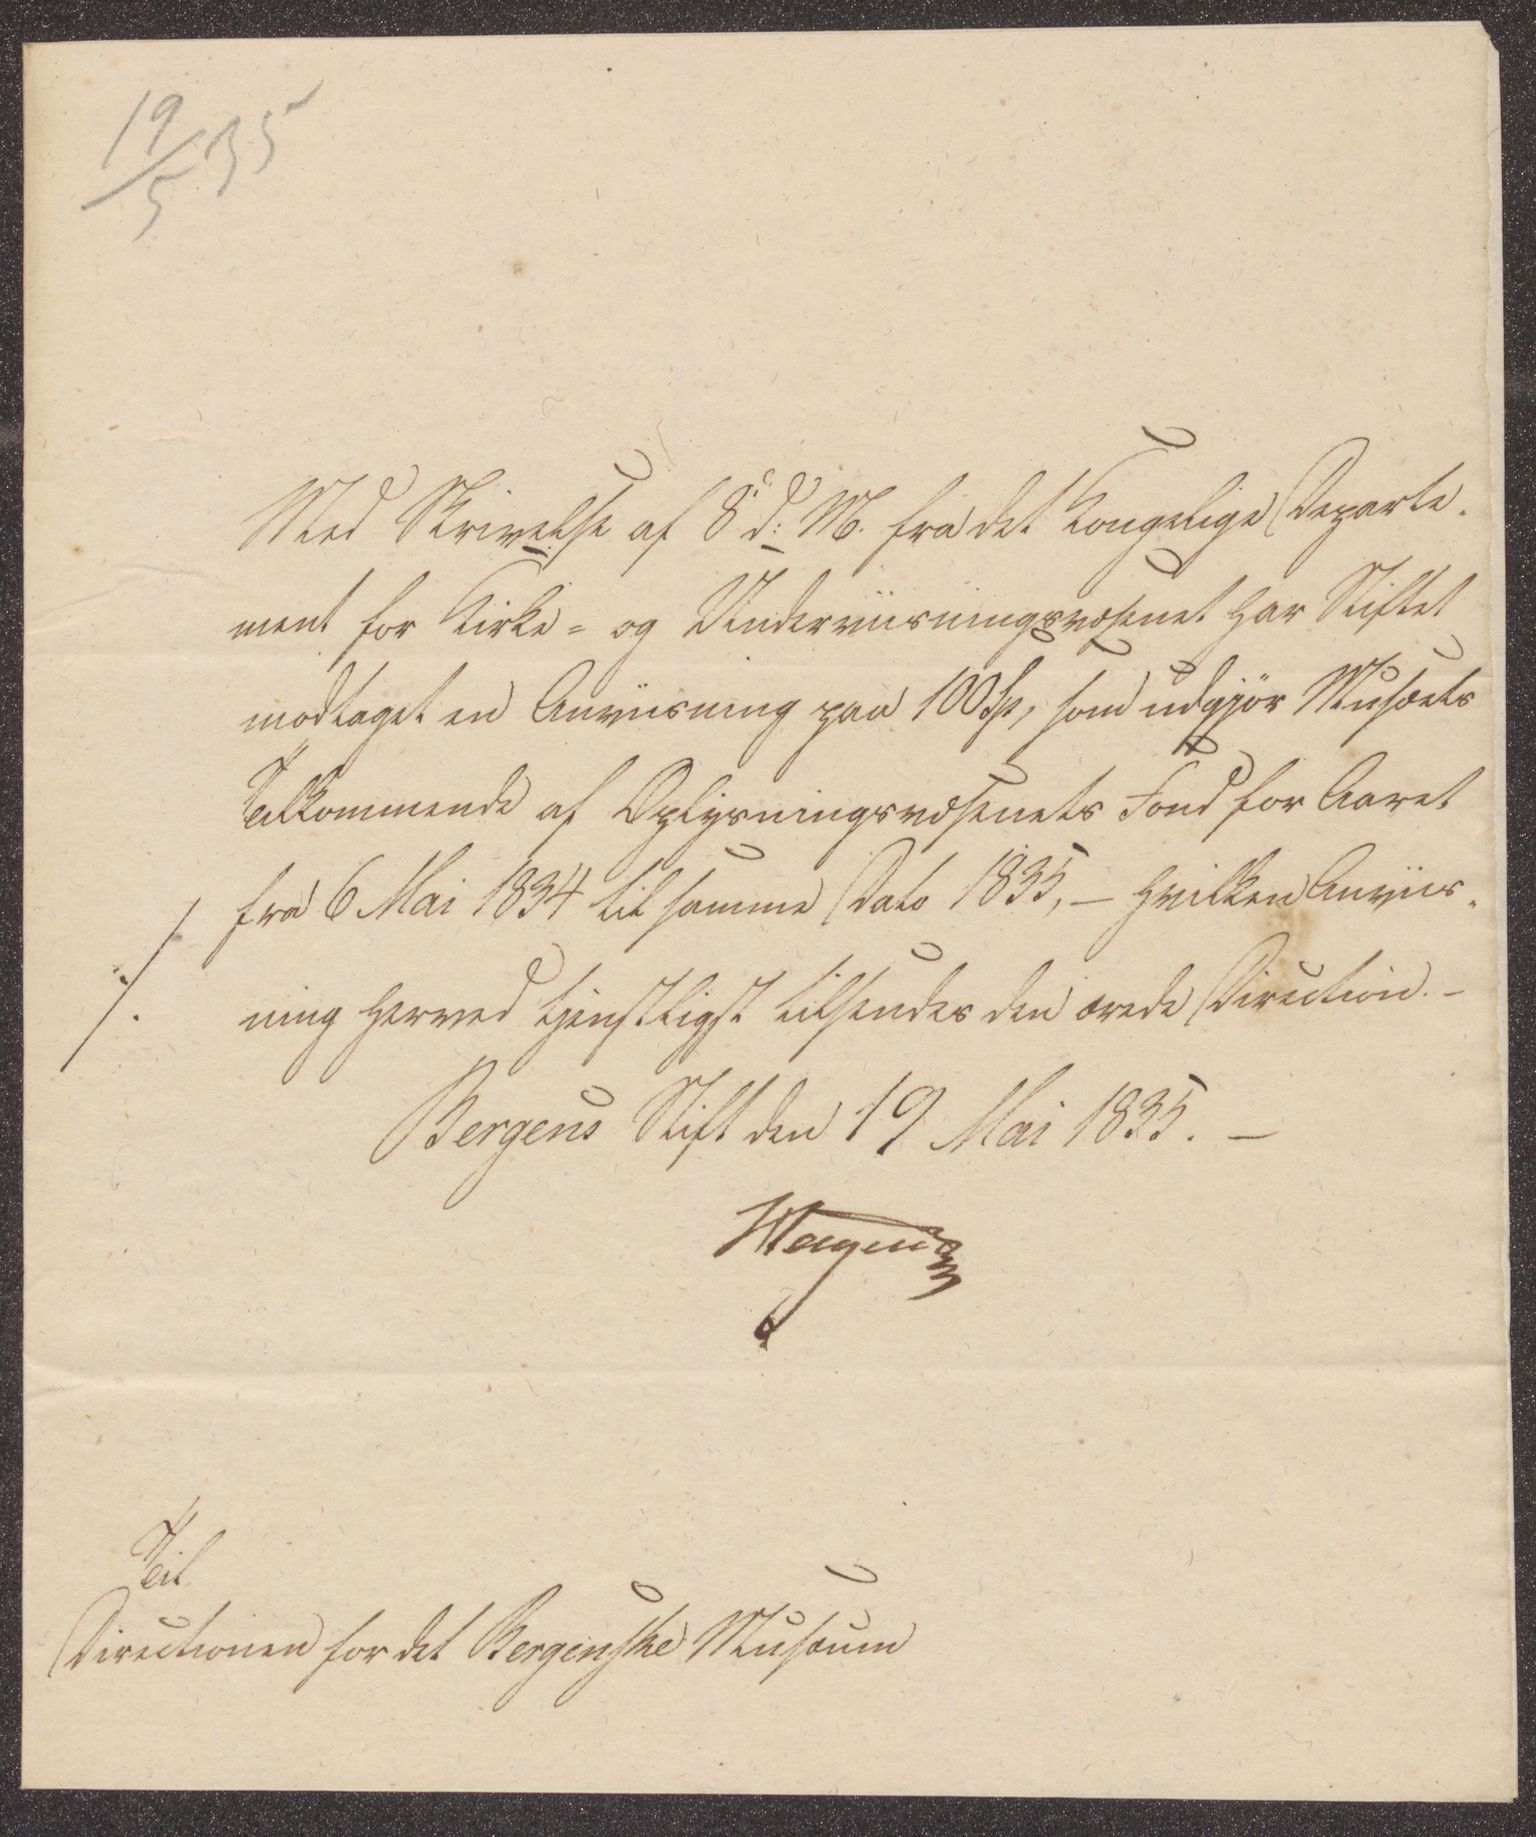 19/5 35
Med Skrivelse af 8de d: M. fra det Kongelige Departe-
ment for Kirke- og Underviisningsvæsenet har Stiftet
modtaget en Anviisning paa 100 Sp, som udgjør Musæets
Tilkommende af Oplysningsvæsenets Fond for Aaret
fra 6 Mai 1834 til samme Dato 1835, – hvilken Anviis-
./. ning herved tjenstligst tilsendes den ærede Direction. –
Bergens Stift den 19 Mai 1835. –
Hagerup
Til
Directionen for det Bergenske Musæum